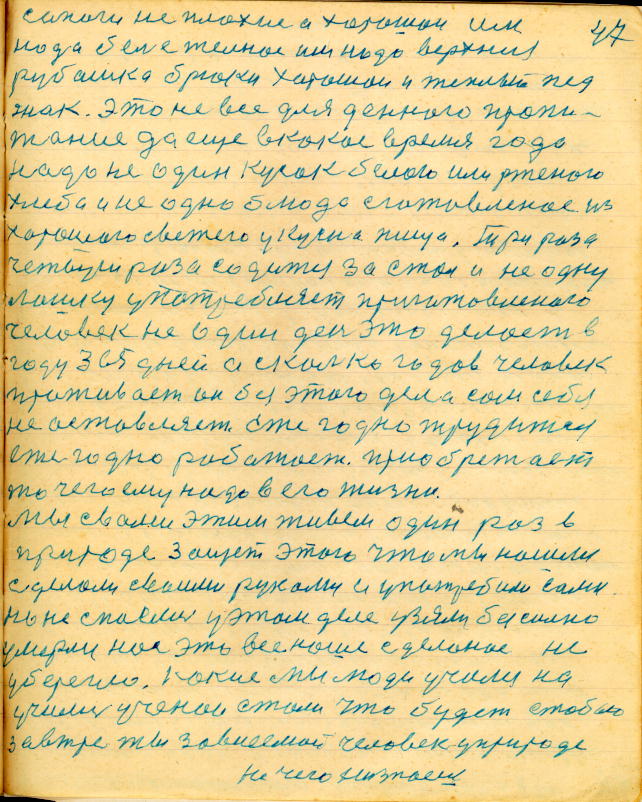 сапоги не плохие а хорошои им 47
нада беле теплое им надо верхния
рубашка брюки хорошои и теплый пед
знак. Это не все для денного пропи-
тание да еще в какое время года
надо не один кусок белого или рженого
хлеба и не одно блюда сготовленое из
хорошого светего укусна пища. Три раза
четыри раза садится за стол и не одну
лошку употребляет приготовленого
человек не один ден это делает в
году 365 дней а сколко годов человек
проживает он без этого дела сам себя
не оставляет. Еже годно трудится
еже годно работает. приобретает
то чего ему надо в его жизни.
Мы с вами этим живем один раз в
природе Защет этого что мы нашли
сделали своими руками и употребили сами.
но не спаслись у этом деле взяли бесилно
умерли нас это все наше сделаное не
уберегло. Какие мы люди учился на
учился ученои стали что будет стобою
завтре ты зависемой человек уприроде
не чего незнаеш